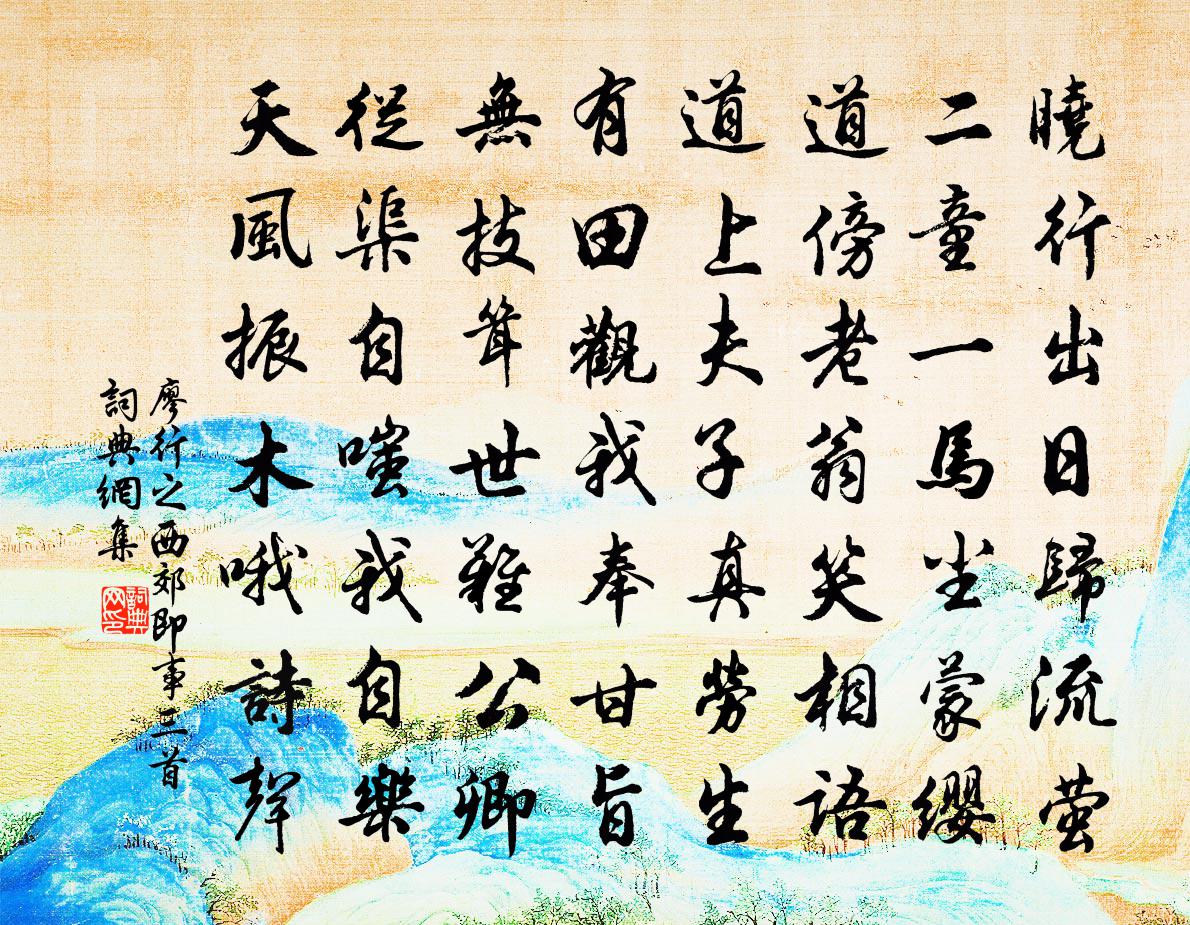 曉行出日歸流螢
二童一馬尘蒙纓
道傍老翁笑相語
道上夫子真勞生
有田觀我奉甘旨
無技耸世難公卿
從渠自嗤我自樂
天風振木哦詩聲
廖行之西郊即事三首
詞典網集
詞典网印